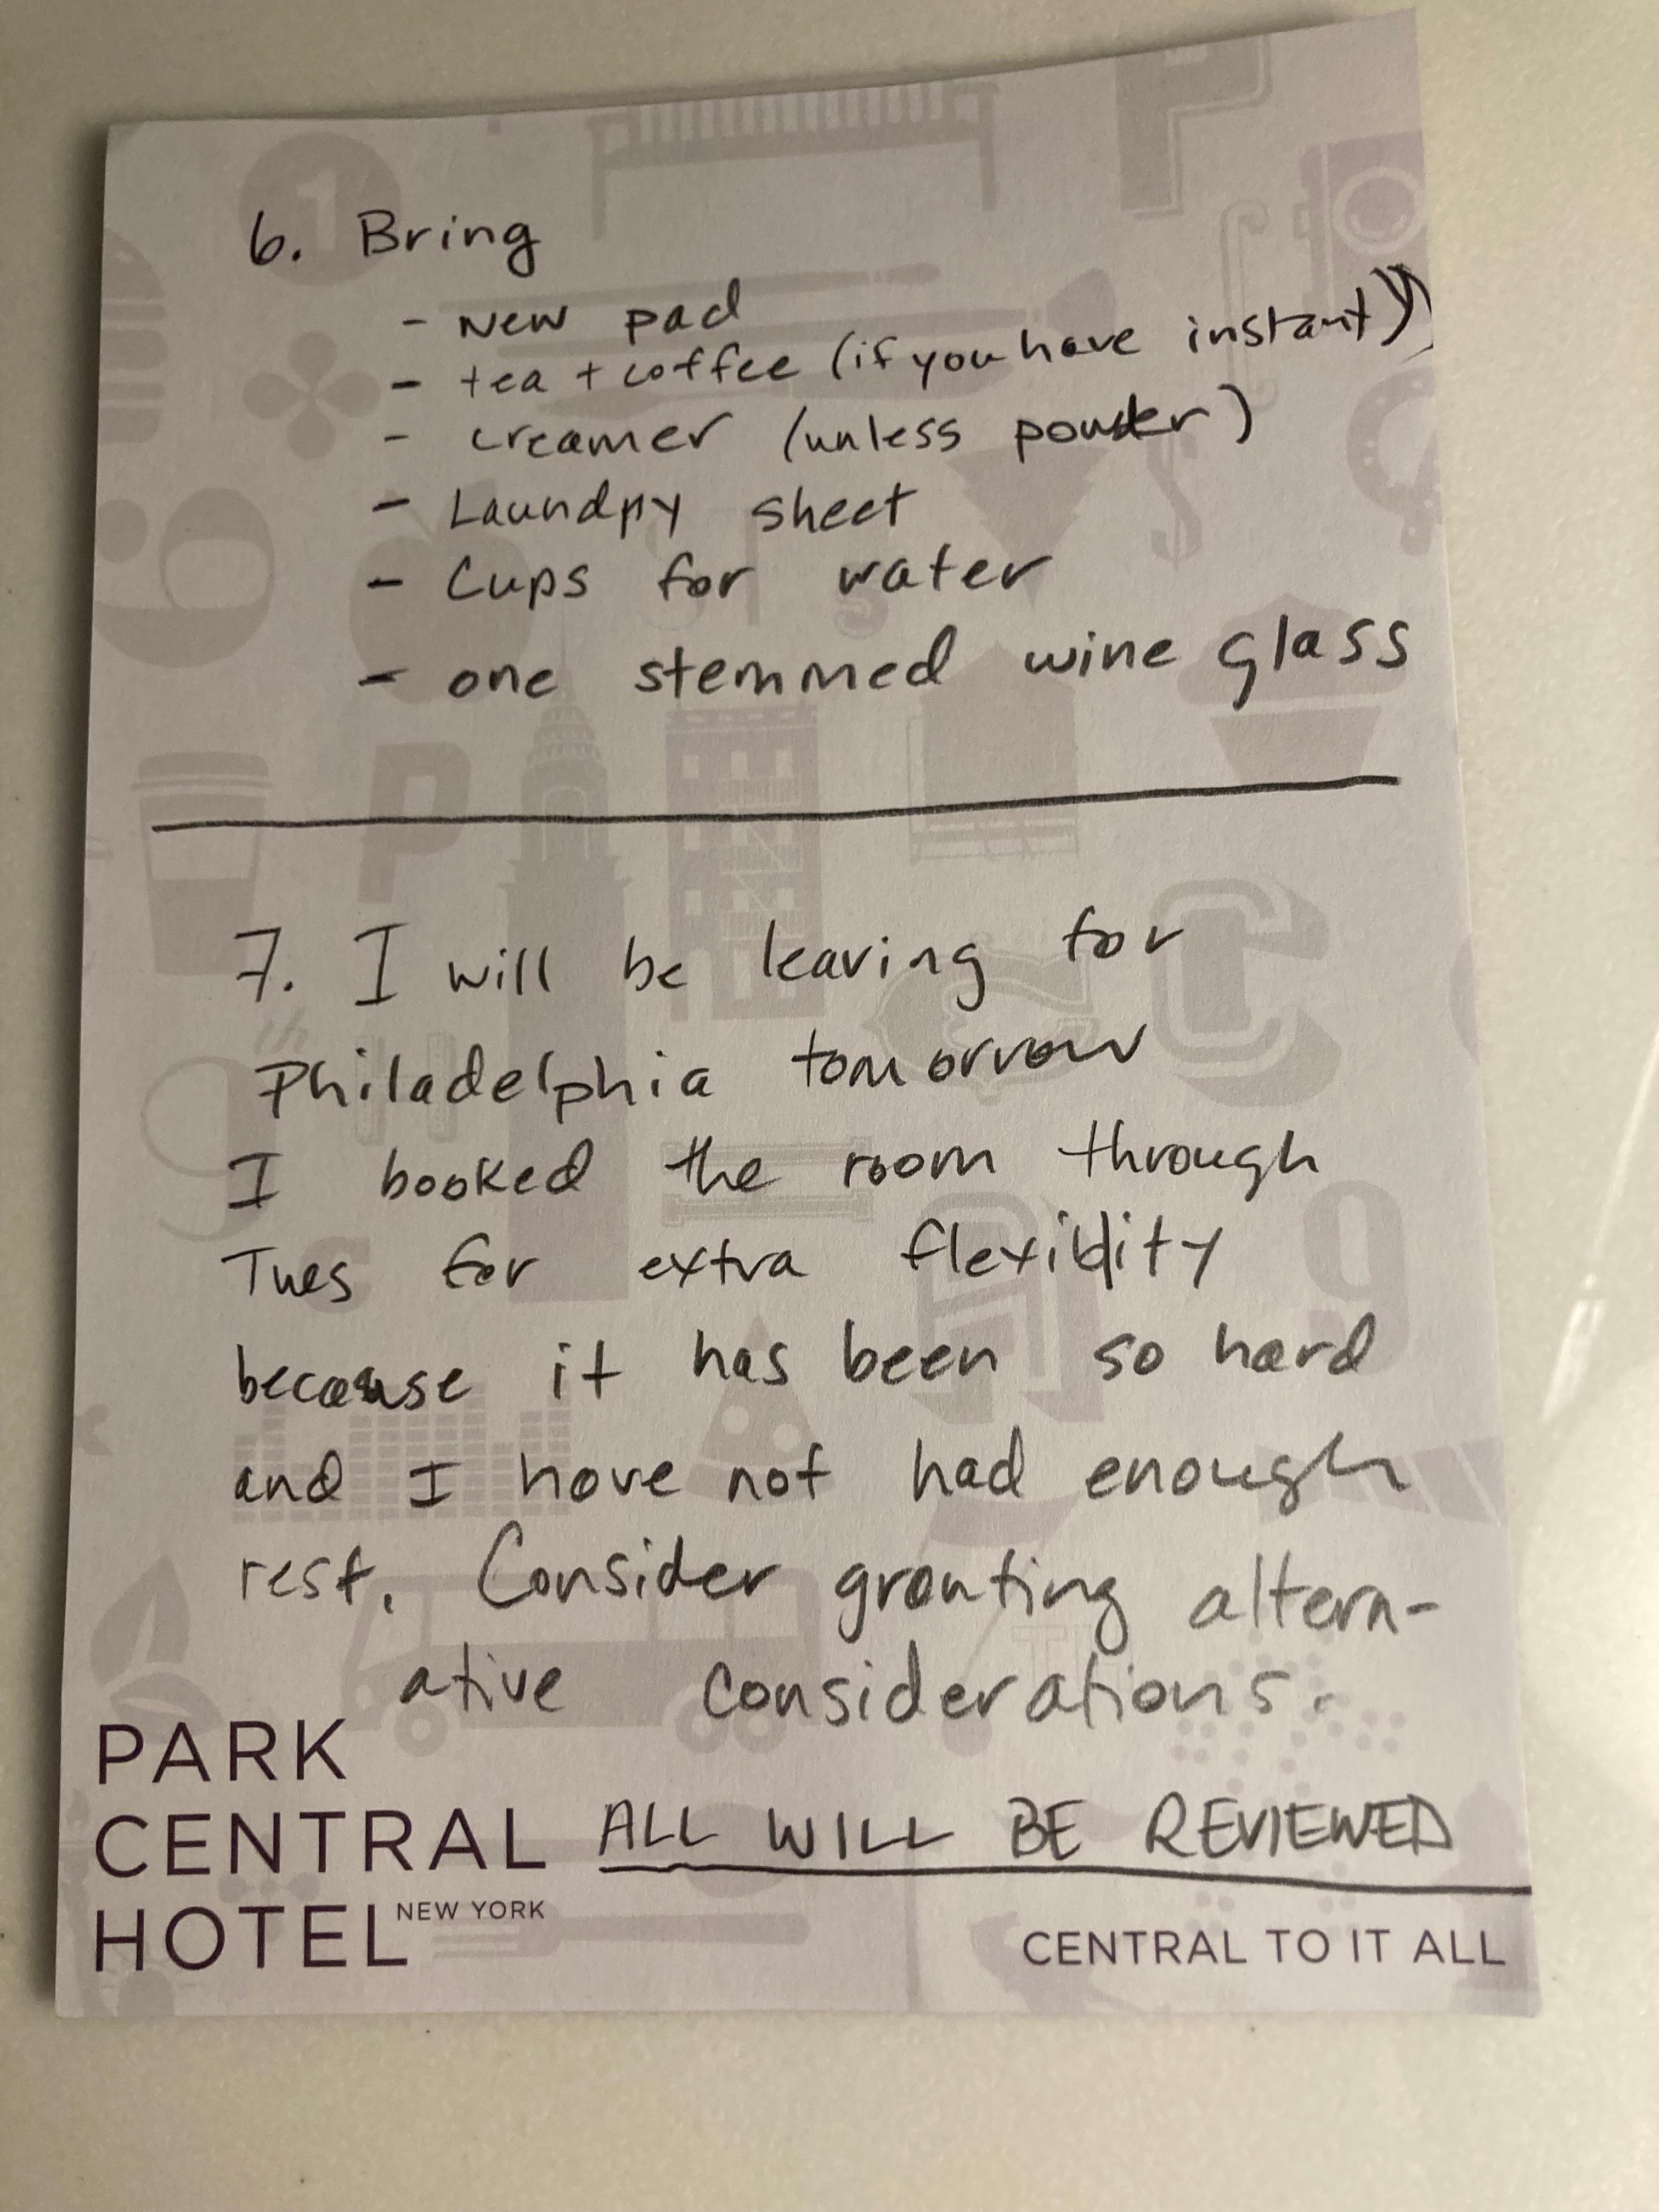 6. Bring
- New pad
- tea + coffee (if you have instant))
- creamer (unless powder)
- Laundry sheet
- Cups for water
- one stemmed wine glass
7. I will be leaving for
Philadelphia tomorrow
I booked the room through
Tues for extra flexiblity
because it has been so hard
and I have not had enough
rest. Consider granting altern-
ative considerations.
ALL WILL BE REVIEWED
PARK
CENTRAL
HOTEL NEW YORK
CENTRAL TO IT ALL